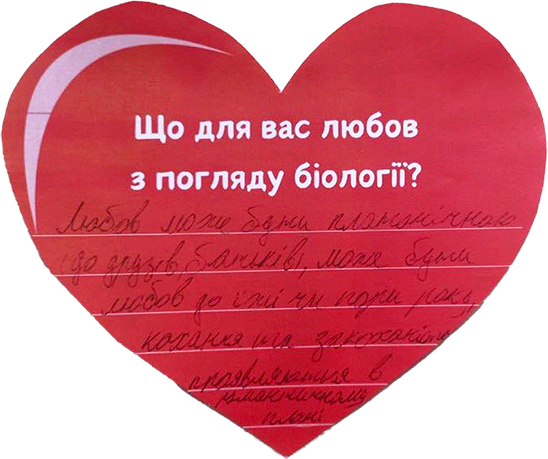 Що для вас любов
з погляду біології?
Любов може бути платонічною
(до друзів, батьків), може бути
любов до їжі чи пори року,
кохання та закоханість
проявляються в
романтичному
плані